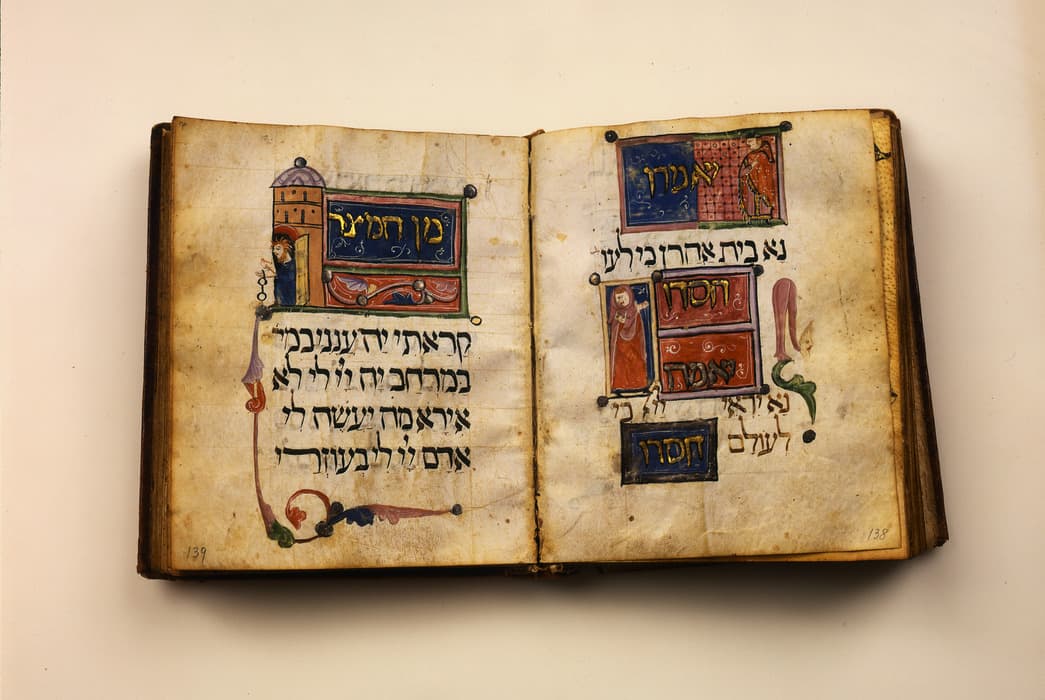 יאמרו
נא בית אהרן כי לעו
חסדו
יאמרו
נא יראי ייי כי
לעולם חסדו
138
מן המיצר
קראתי יה ענני במי
במרחב יה ייי לי לא
אירא מה יעשה לי
אדם ייי לי בעוזרי
139